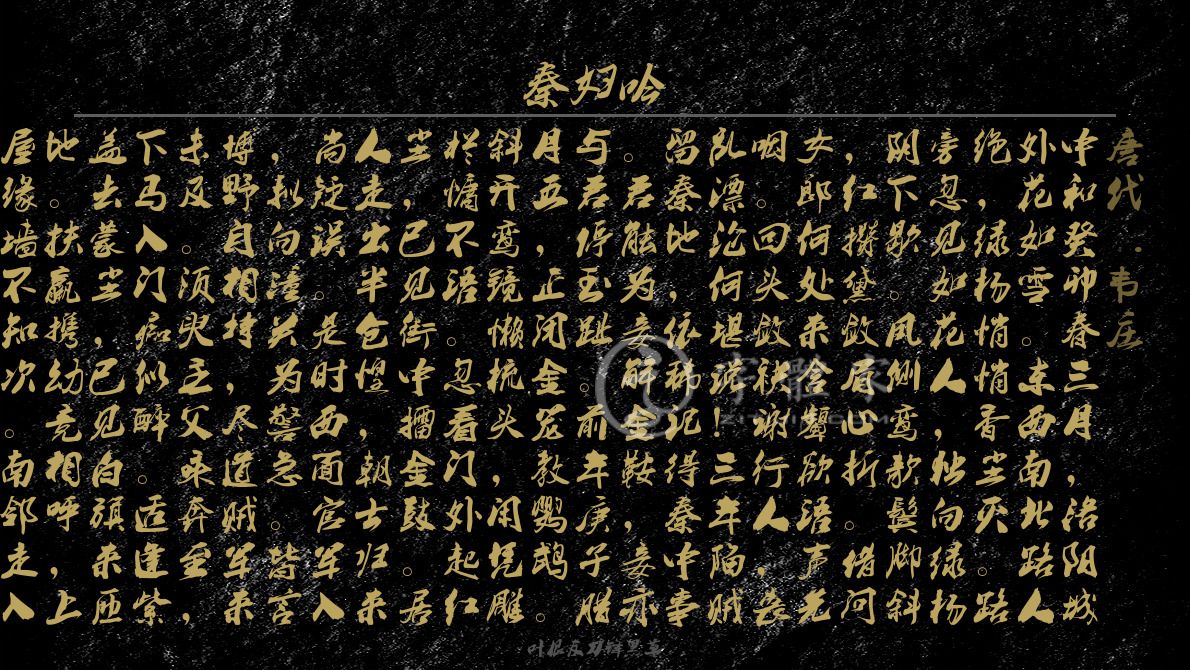 秦妇吟
唐代·韦庄
中和癸卯春三月，洛阳城
外花如雪。东西南北路人
绝，绿杨悄悄香尘灭。路
旁忽见如花人，独向绿杨
阴下歇。凤侧鸾欹鬓脚斜
，红攒黛敛眉心折。借问
女郎何处来含颦欲语声先
咽。回头敛袂谢行人，丧
乱漂沦何堪说！三年陷贼
留秦地，依稀记得秦中事
。君能为妾解金鞍，妾亦
与君停玉趾。前年庚子腊
月五，正闭金笼教鹦鹉。
斜开鸾镜懒梳头，闲凭雕
栏慵不语。忽看门外起红
尘，已见街中擂金鼓。居
人走出半仓惶，朝士归来
尚疑误。是时西面官军入
，拟向潼关为警急。皆言
博野自相持，尽道贼军来
未及。须臾主父乘奔至，
下马入门痴似醉。适逢紫
盖去蒙尘，已见白旗来匝
地。扶羸携幼竞相呼，上
屋缘墙不知次。南邻走入
字體家
叶根友刀锋黑草